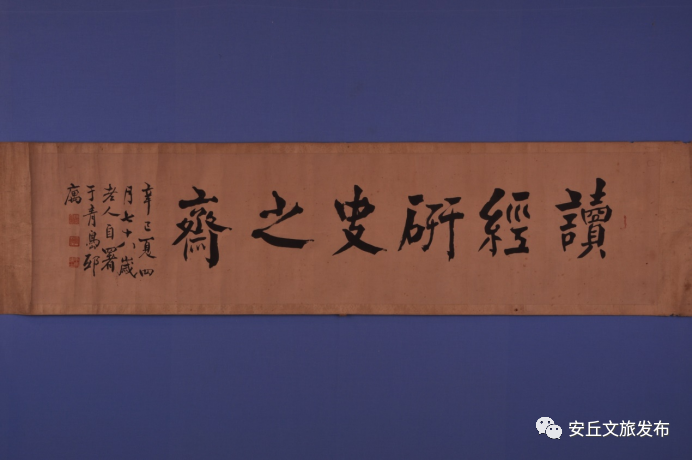 讀經研史之齋
辛巳夏四
月七十八歲
老人自署
于青島邸
寓
安丘文旅发布